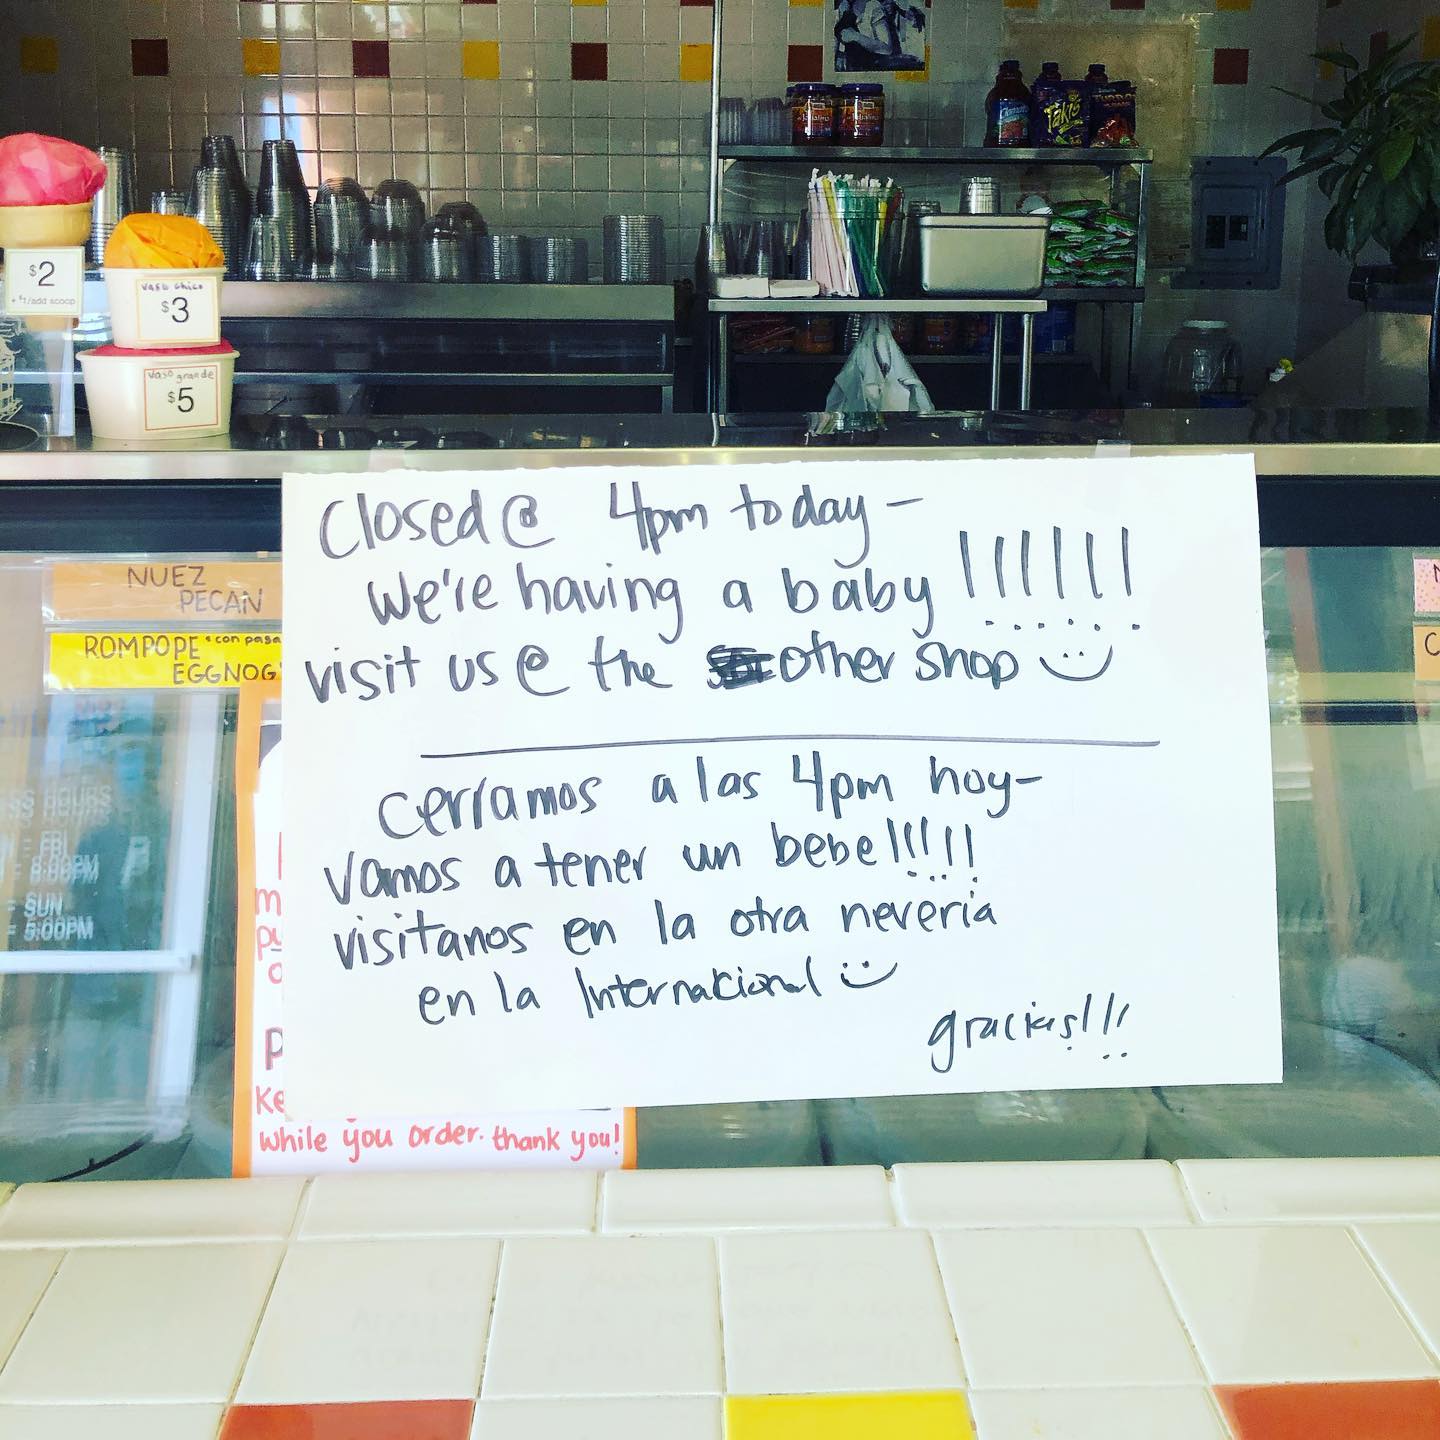 $2
+ $1/add scoop
vaso chico
$3
vaso grande
$5
Takis
NUEZ
PECAN
ROMPOPE
EGGNOG
Closed @ 4pm today-
We're having a baby !!!!!!
visit us @ the other shop
Cerramos a las 4pm hoy-
vamos a tener un bebe!!!!!
visitanos en la otra neveria
en la Internacional
gracias!!!
while you order. thank you!
HOURS
FRI
- 8:00PM
- SUN
- 5:00PM